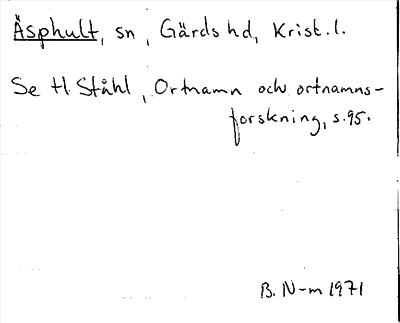 Äsphult, sn, Gärds hd, Krist. l.
Se H Ståhl, Ortnamn och ortnamns-
forskning, s. 95.
B. N-m 1971